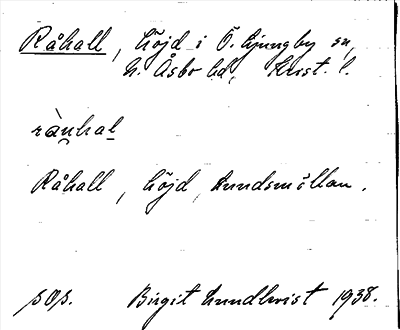 Råhall, höjd i Ö. Ljungby sn,
N. Åsbo hd, Krist. l.
ràu̯hal
Råhall, höjd, Lundsmöllan.
sOs. Birgit Lundkvist 1938.